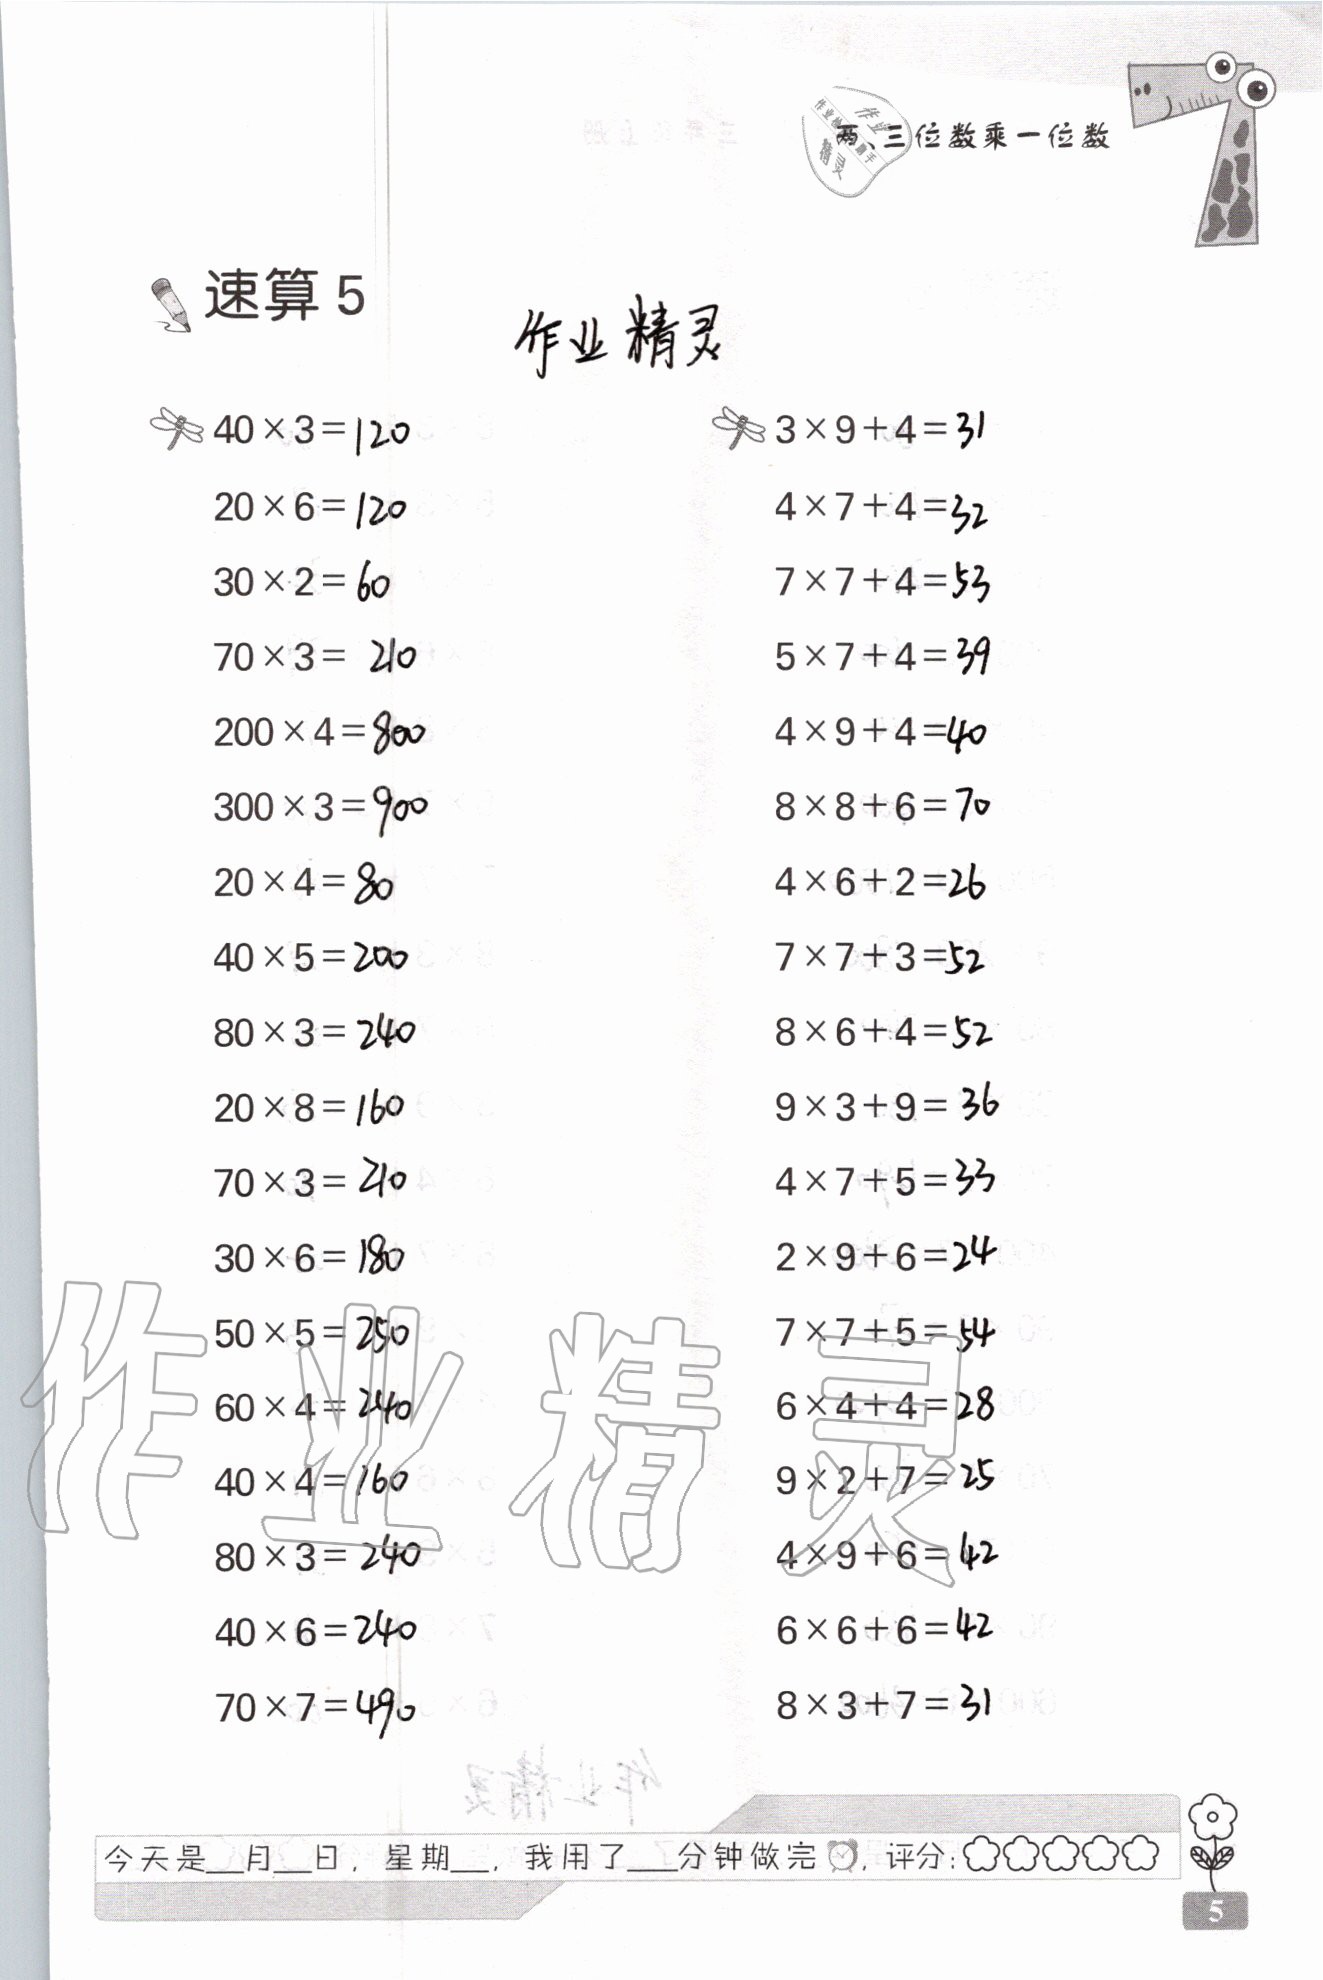 两、三位数乘一位数
作业
精灵
速算 5
作业精灵
40×3=120
20×6=120
30×2=60
70×3=210
200×4=800
300×3=900
20×4=80
40×5=200
80×3=240
20×8=160
70×3=210
30×6=180
50×5=250
60×4=240
40×4=160
80×3=240
40×6=240
70×7=490
3×9+4=31
4×7+4=32
7×7+4=53
5×7+4=39
4×9+4=40
8×8+6=70
4×6+2=26
7×7+3=52
8×6+4=52
9×3+9=36
4×7+5=33
2×9+6=24
7×7+5=54
6×4+4=28
9×2+7=25
4×9+6=42
6×6+6=42
8×3+7=31
作业精灵
今天是__月__日，星期__，我用了___分钟做完，评分:
5